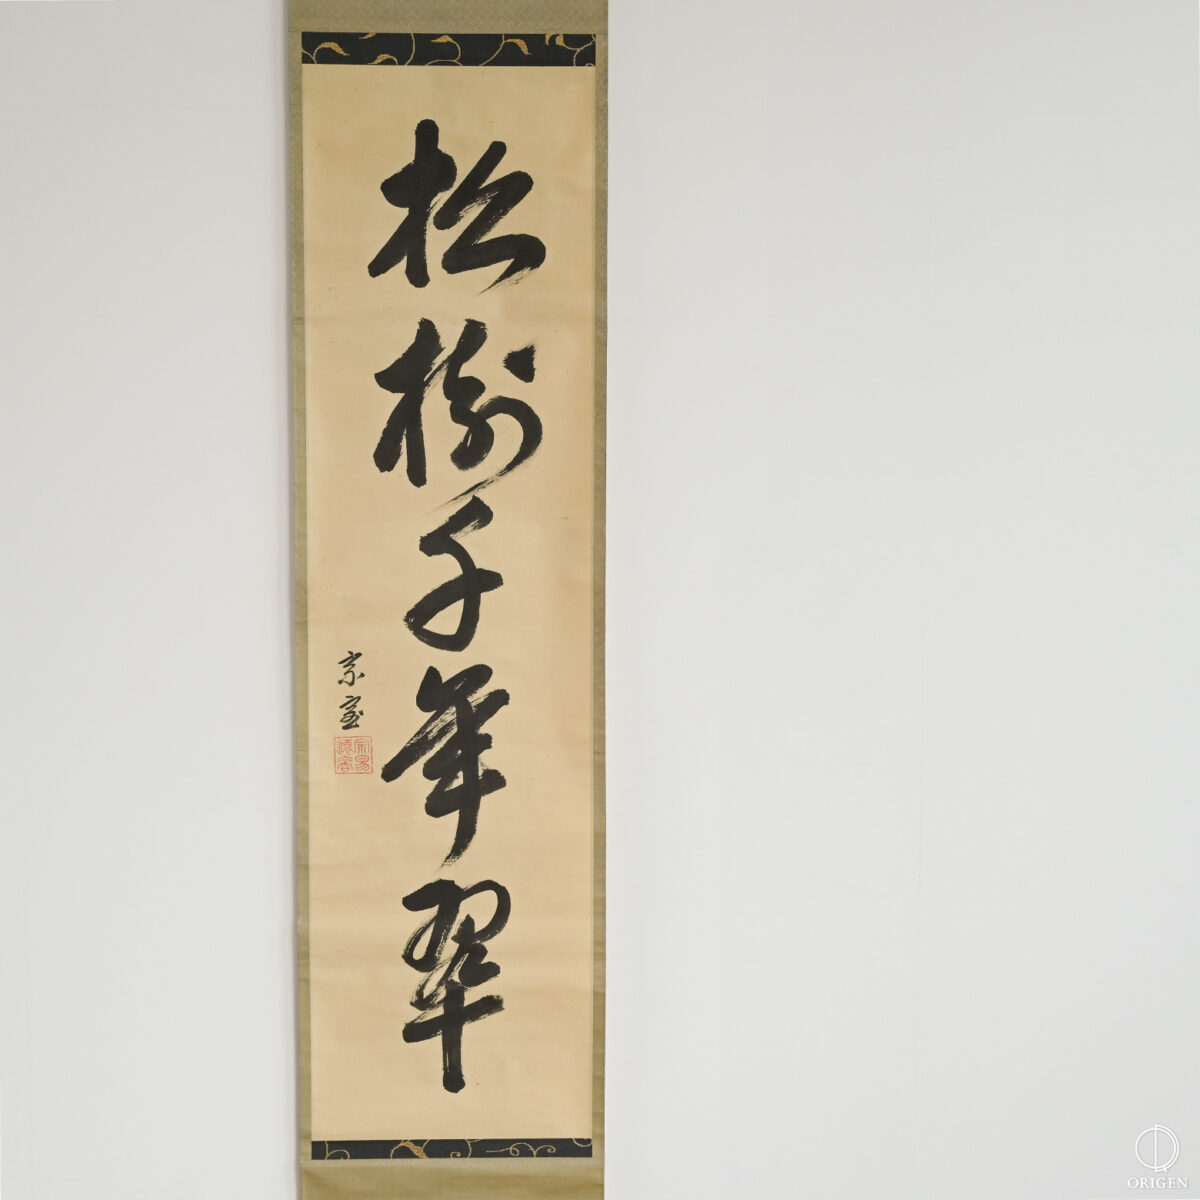 松樹千年翠
宗室
ORIGEN